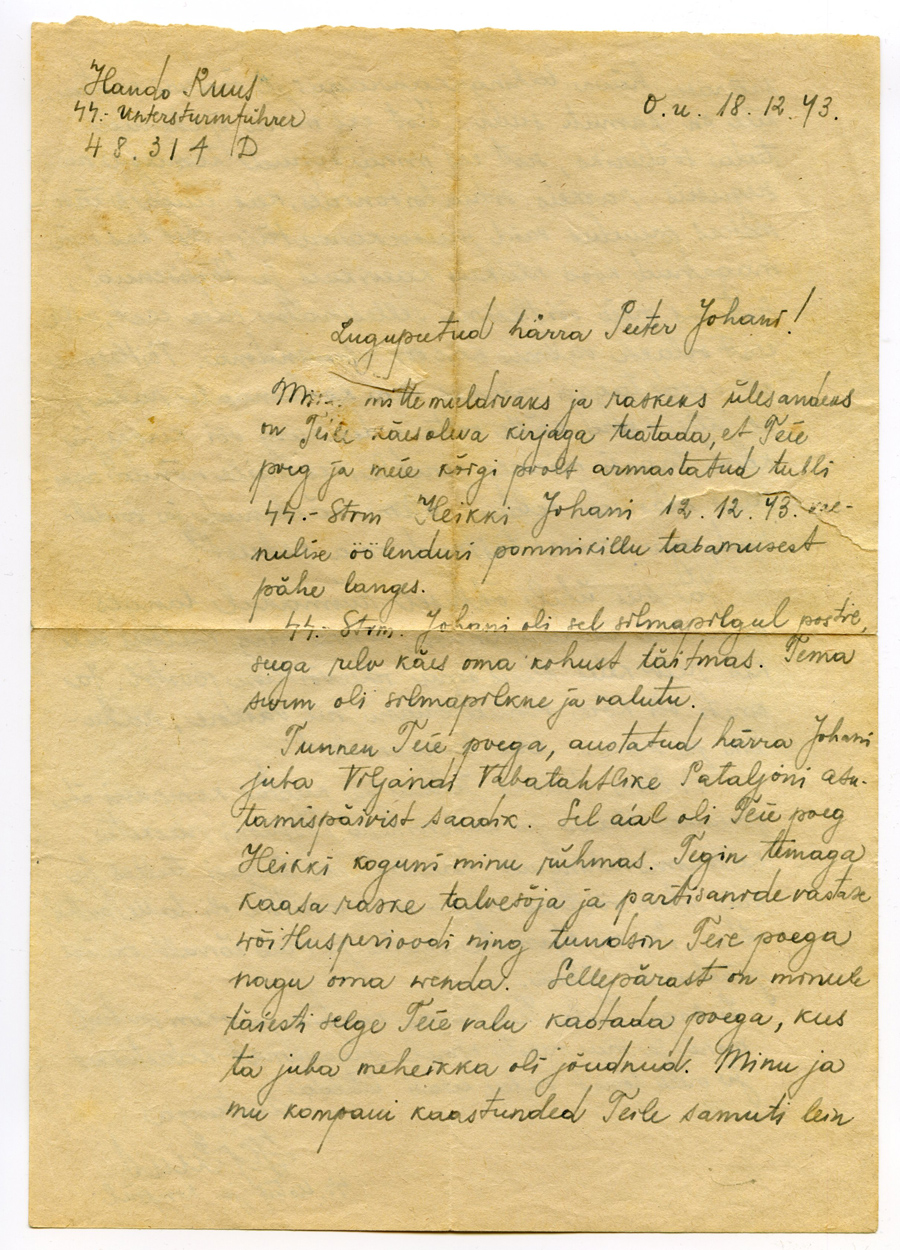 Hando Ruus
SS.- Untersturmführer
48.314 D
O.u. 18.12.43.
Lugupeetud härra Peeter Johani!
mittemeeldivaks ja raskeks ülesandeks
on Teile käesoleva kirjaga teatada, et Teie
poeg ja meie kõigi poolt armastatud tubli
SS.- Strm Heikki Johani 12.12.43. vae-
nulise öölenduri pommikillu tabamusest
pähe langes.
SS.- Strm. Johani oli sel silmapilgul postil,
seega relv käes oma kohust täitmas. Tema
surm oli silmapilkne ja valutu.
Tunnen Teie poega, austatud härra Johani
juba Viljandi Vabatahtlike Pataljoni asu-
tamispäivist saadik. Sel aal oli Teie poeg
Heikki koguni minu rühmas. Tegin temaga
kaasa raske talvesõja ja partisanide vastase
wõitlusperioodi ning tundsin Teie poega
nagu oma wenda. Sellepärast on minule
täiesti selge Teie valu kaotada poega, kus
ta juba meheikka oli jõudnud. Minu ja
mu kompanii kaastunded Teile samuti lein